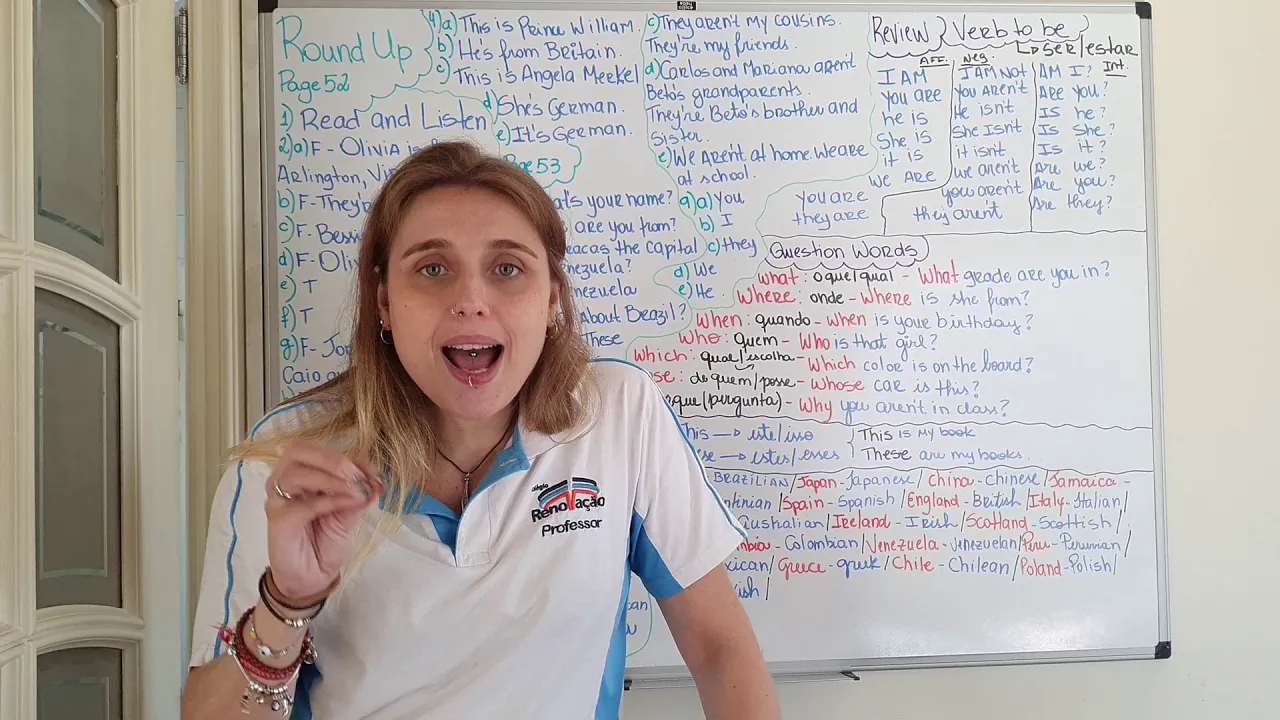 Round Up
Page 52
1) Read and Listen
2) a) F - Olivia is
Arlington,
b) F - They're
c) F - Bessi
d) F - Oliv
e) T
f) T
g) F -
Caio
4) a) This is Prince William.
b) He's from Britain.
c) This is Angela Merkel
d) She's German.
e) It's German.
53
your name?
are you from?
the capital
Venezuela?
Venezuela
About Brazil?
These
c) They aren't my cousins.
They're my friends.
d) Carlos and Mariana aren't
Beto's grandparents.
They're Beto's brother and
sister.
e) We aren't at home. We are
at school.
9) a) You
b) I
c) they
d) We
e) He
Review } Verb to be
↳ ser/estar
AFF. Neg. Int.
I AM I AM NOT AM I?
You are You aren't Are you?
he is He isn't Is he?
She is She Isn't Is She?
it is it isn't Is it?
We Are we aren't Are we?
You are you aren't Are you?
they are they aren't Are they?
Question Words
what: o que/qual - What grade are you in?
Where: onde - Where is she from?
When: quando - When is your birthday?
Who: quem - Who is that girl?
which: qual/escolha - Which color is on the board?
de quem/posse - Whose car is this?
(pergunta) - Why you aren't in class?
This → este/isso { This is my book
→ estes/esses These are my books.
Brazilian/Japan - Japanese/China - Chinese/Jamaica -
Spain - Spanish/England - British/Italy - Italian/
Australian/Ireland - Irish/Scotland - Scottish/
Colombian/Venezuela - Venezuelan/Peru - Peruvian/
Greece - greek/Chile - Chilean/Poland - Polish/
Renovação
Professor